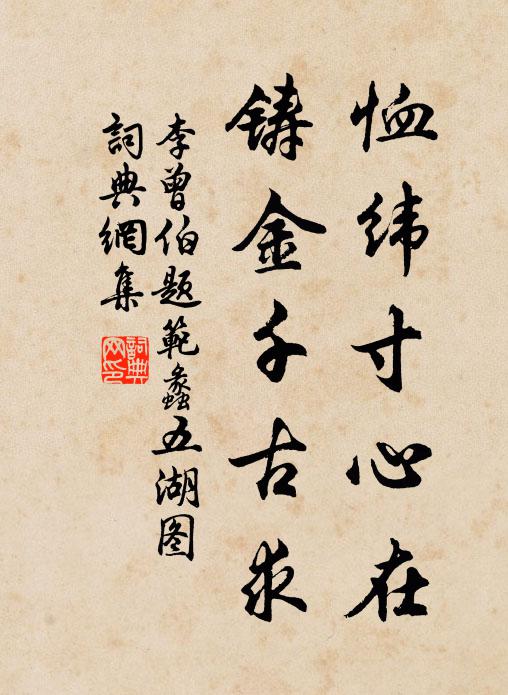 恤纬寸心在
铸金千古求
李曾伯题範蠡五湖图
詞典網集
詞典网印